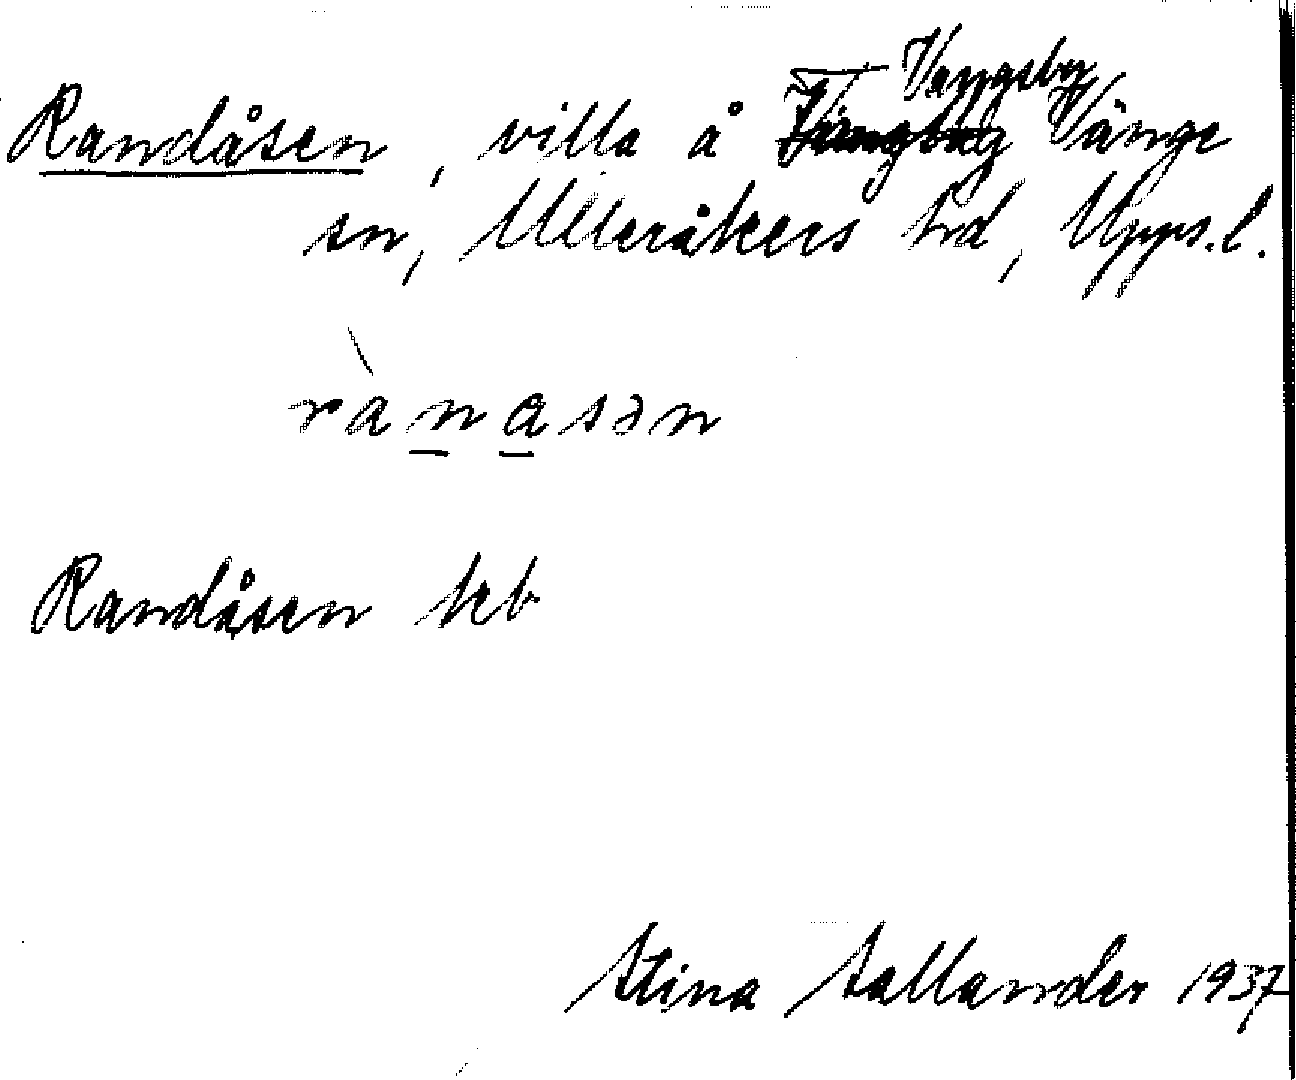 Vangsby
Randåsen, villa å Vänge
sn, Ulleråkers hd, Upps.l.
rànasən
Randåsen kb
Stina Sallander 1937